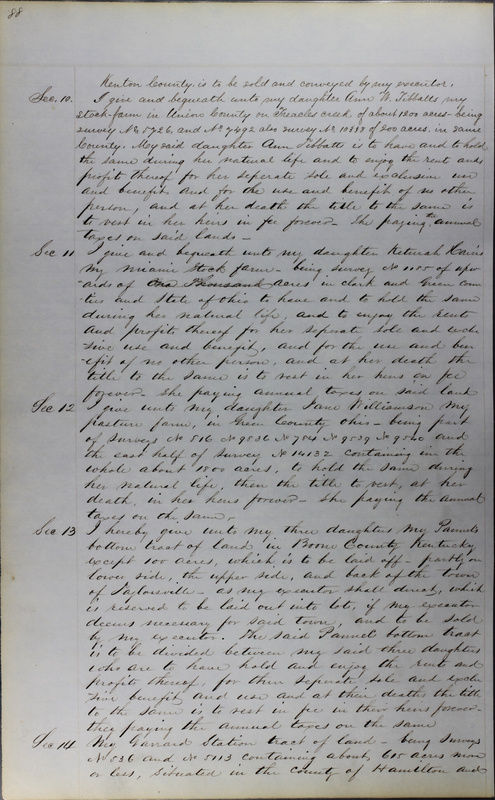 88
Kenton County, is to be sold and conveyed by my executor.
Sec. 10. I give and bequeath unto my daughter Ann W. Tibbatts my
stock-farm in Union County on Treacles creek of about 1200 acres - being
survey No 5726, and No 7492 also survey No 10333 of 200 acres. in same
County. My said daughter Ann Tibbatts is to have and to hold
the same during her natural life and to enjoy the rent and
profit thereof for her seperate sole and exclusive use
and benefit and for the use and benefit of no other
person, and at her death the title to the same is
to vest in her heirs in fee forever - She paying the annual
taxes on said lands -
Sec 11 I give and bequeath unto my daughter Keturah Harris
my miami stock farm - being survey No of upw
-ards of One Thousand acres in clark and Green coun
ties and State of Ohio to have and to hold the same
during her natural life, and to enjoy the rent
and profits thereof for her seperate sole and exclu
sive use and benefit, and for the use and ben
-efit of no other person, and at her death the
title to the same is to vest in her heirs in fee
forever - She paying annual taxes on said land
Sec 12 I give unto my daughter Jane Williamson my
pasture farm, in Green County Ohio - being part
of surveys No 816 No 9836 No No 9839 No and
the east half of survey No 14132 containing in the
whole about 1800 acres, to hold the same during
her natural life, then the title to vest, at her
death, in her heirs forever - She paying the annual
taxes on the same.
Sec 13 I hereby give unto my three daughters my Pannels
bottom tract of land in Boone County Kentucky
except 100 acres, which is to be laid off - partly on
lower side, the upper side, and back of the town
of Taylorsville - as my executor shall direct, which
is reserved to be laid out into lots, if my executor
deems necessary for said town, and to be sold
by my executor. The said Pannel bottom tract
is to be divided between my said three daughters
who are to have hold and enjoy the rent and
profit thereof, for them seperate, sole and exclu
sive benefit and use and at their deaths the title
to the same is to vest in fee in their heirs forever -
they paying the annual taxes on the same
Sec 14 My Garrard Station tract of land - being surveys
No 536 and No 5113 containing about, 615 acres more
or less, situated in the county of Hamilton and